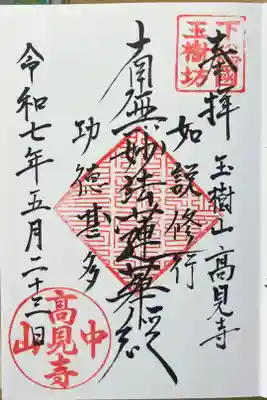 奉拝
玉樹山 高見寺
下総國
玉樹坊
如説修行
南無妙法蓮華経
功徳甚多
令和七年五月二十三日
中山
高見寺